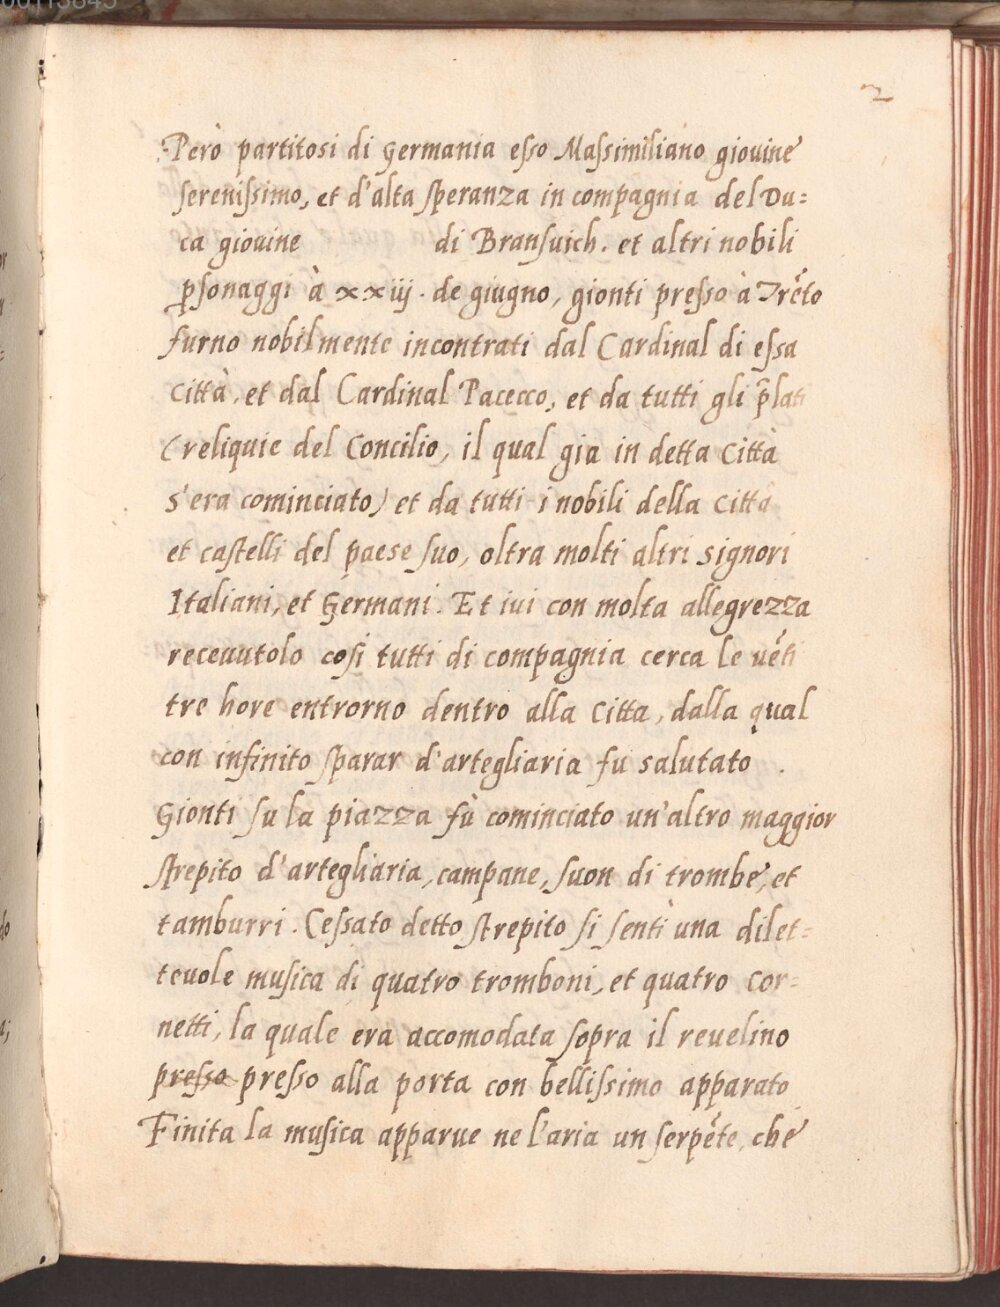 00113845
2
Però partitosi di Germania esso Massimiliano giovine
serenissimo, et d'alta speranza in compagnia del Du=
ca giovine di Bransuich. et altri nobili
p̱sonaggi à xxiij. de giugno, gionti presso à Trẽto
furno nobilmente incontrati dal Cardinal di essa
Città, et dal Cardinal Pacecco, et da tutti gli p̃lati
(reliquie del Concilio, il qual gia in detta Città
s'era cominciato) et da tutti i nobili della Città
et castelli del paese suo, oltra molti altri signori
Italiani, et Germani. Et ivi con molta allegrezza
recevutolo così tutti di compagnia cerca le vẽti
tre hore entrorno dentro alla Citta, dalla qual
con infinito sparar d'artegliaria fu salutato.
Gionti su la piazza fù cominciato un'altro maggior
strepito d'artegliaria, campane, suon di trombe, et
tamburri. Cessato detto strepito si sentì una dilet=
tevole musica di quatro tromboni, et quatro Cor=
netti, la quale era accomodata sopra il revelino
presso presso alla porta con bellissimo apparato
Finita la musica apparve ne l'aria un serpẽte, che